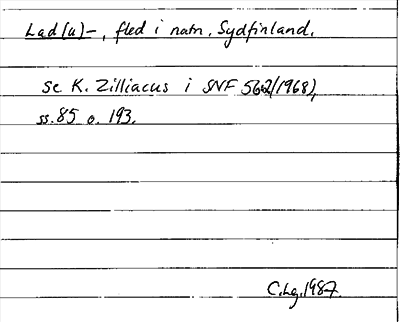 Lad(u)-, fled i natn, Sydfinland.
se K. Zilliacus i SNF 562(1968),
ss. 85 o. 193.
C.Lg. 1987